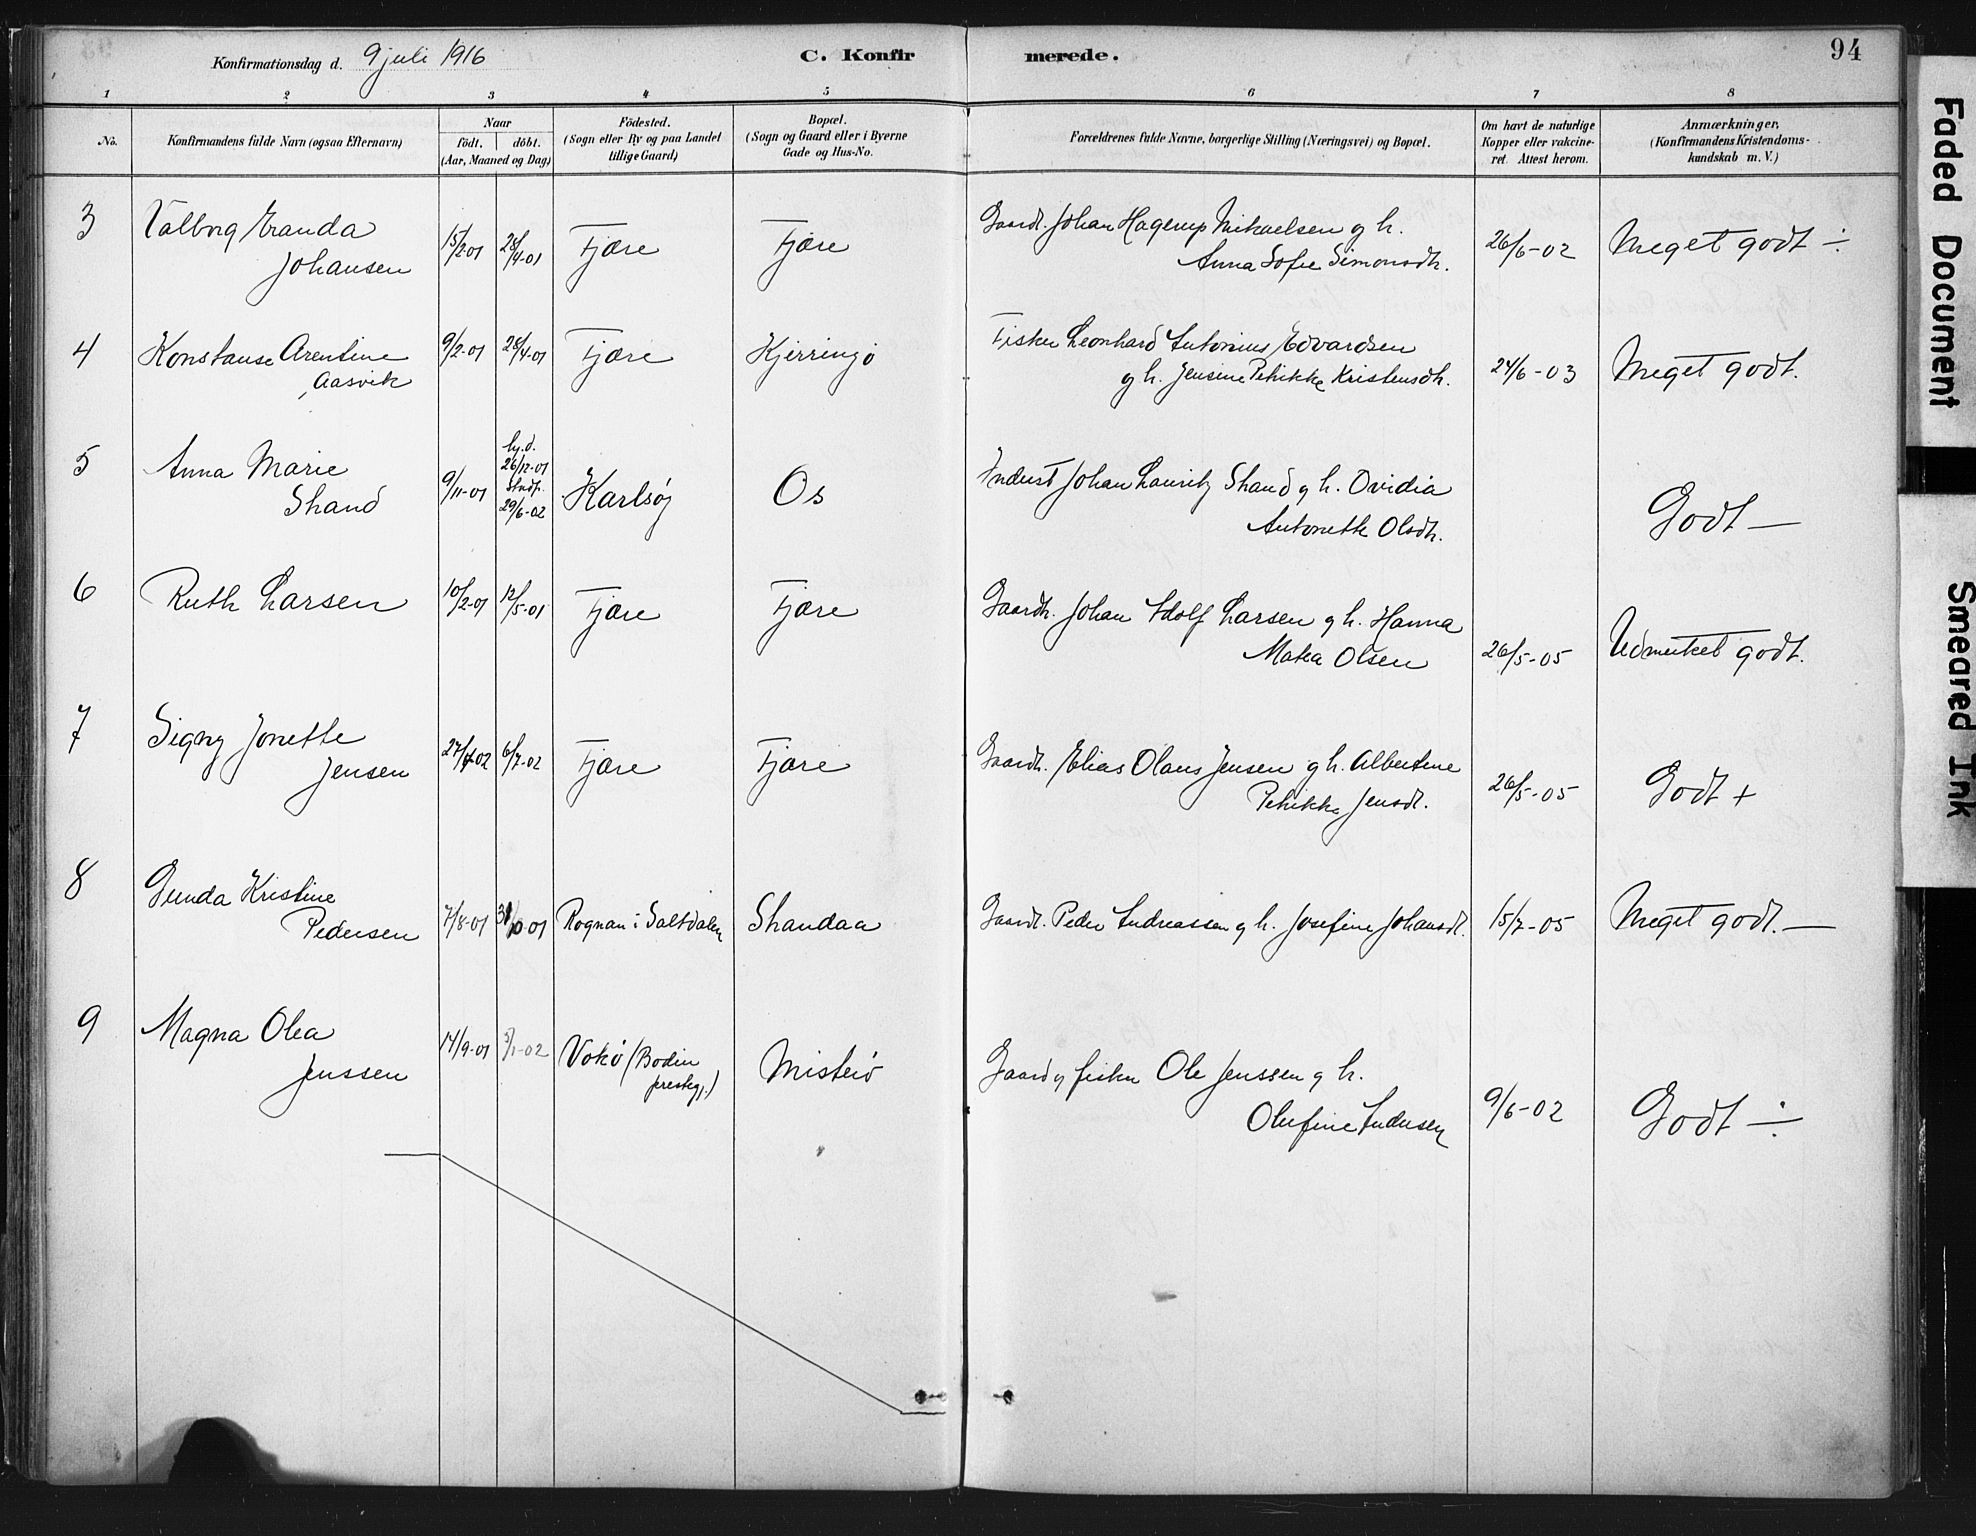 Konfirmationsdag d. 9 juli 1916
C. Konfirmerede.
94
1 2 3 4 5 6 7 8
No.
Konfirmandens fulde Navn (ogsaa Efternavn)
Naar
født. døbt.
(Aar, Maaned og Dag)
Födested.
(Sogn eller By og paa Landet
tillige Gaard)
Bopæl.
(Sogn og Gaard eller i Byerne
Gade og Hus-No.
Forældrenes fulde Navne, borgerlige Stilling (Næringsvei) og Bopæl.
Om havt de naturlige
Kopper eller vakcine-
ret. Attest herom.
Anmærkninger.
(Konfirmandens Kristendoms-
kundskab m. V.)
3 Valborg Eranda
Johansen
15/2-01 28/4-01 Fjære Fjære
Gaardt. Johan Hagerup Mikaelsen og h.
Anna Sofie Simonsdtr.
26/6-02 Meget godt ÷
4 Konstanse Arentine
Aasvik
9/2-01 28/4-01 Fjære Kjerringö
Fisker Leonhard Antonius Edvardsen
og h. Jensine Petrikke Kristensdtr.
24/6-03 Meget godt.
5 Anna Marie
Strand
9/11-01
hj.d.
26/12-01
Stadf.
29/6-02
Karlsøy Os
Inderst Johan Lauritz Strand og h. Ovidia
Antonette Olsdtr.
Godt —
6 Ruth Larsen
10/2-01 12/5-01 Fjære Fjære
Gaardtr. Johan Adolf Larsen og h. Hanna
Matea Olsen
26/5-05 Udmerket godt.
7 Signy Jonette
Jensen
27/4-02 6/7-02 Fjære Fjære
Gaardtr. Elias Olaus Jensen og h. Albertine
Petrikke Jensdt.
26/5-05 Godt +
8 Gunda Kristine
Pedersen
7/8-01 Rognan i Saltdalen Strandaa
Gaardt. Peder Andreassen og h. Josefine Johansdt.
15/7-05 Meget godt. —
9 Magna Olea
Jenssen
14/9-01 Vokö (Bodin
prestegj.)
Misteiö
Gaard og fisker Ole Jenssen og h.
Olufine Andersen
9/6-02 Godt ÷
Faded Document
Smeared Ink